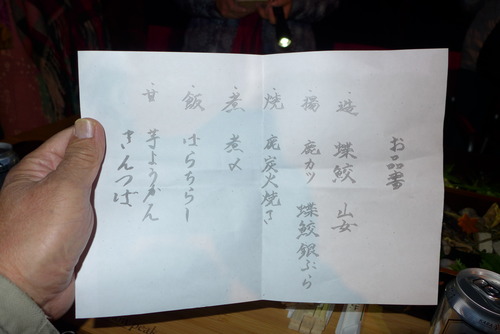 お品書
遊 蝶鮫 山女
揚 鹿カツ 蝶鮫銀ぷら
焼 鹿炭火焼き
煮 煮〆
飯 ばらちらし
甘 芋ようかん
きんつば